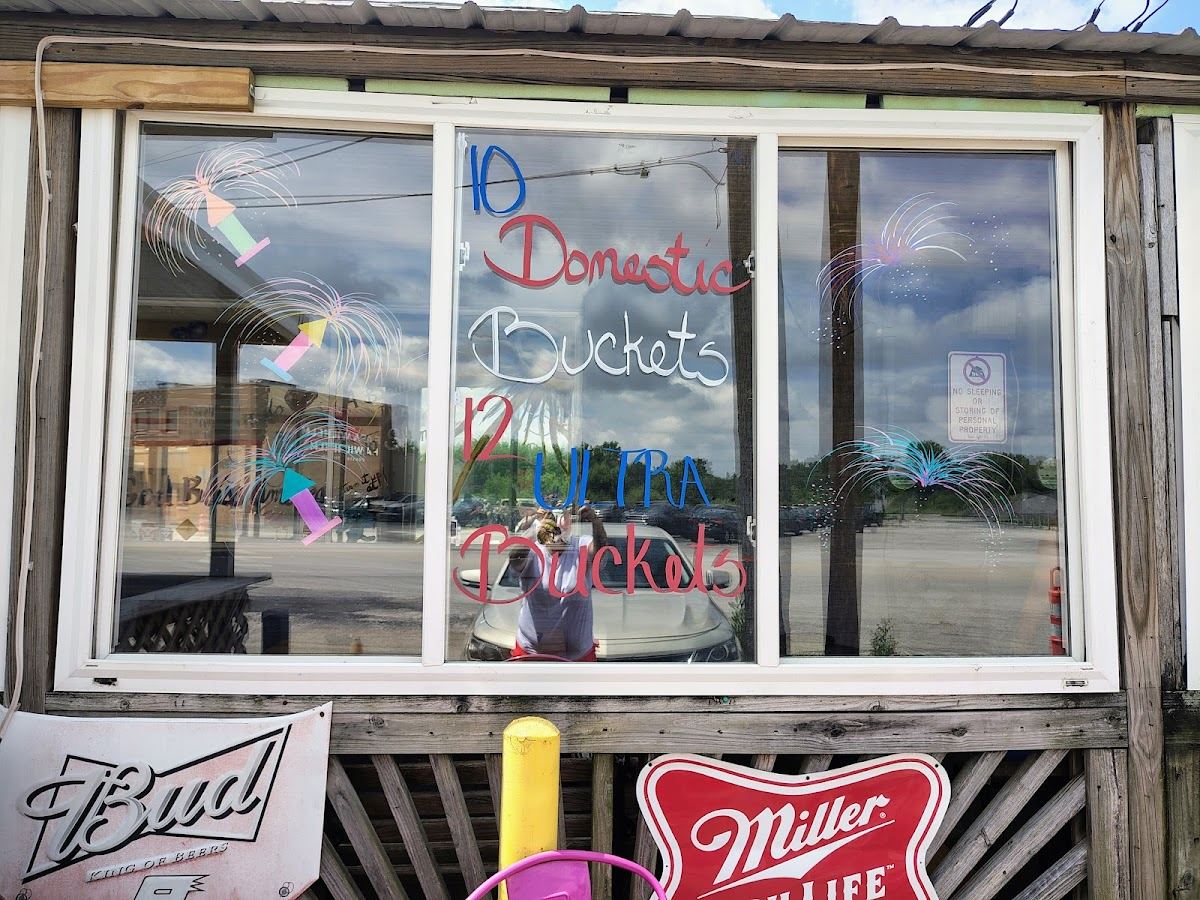 10
Domestic
Buckets
12
ULTRA
Buckets
NO SLEEPING
OR
STORING OF
PERSONAL
PROPERTY
Bud
KING OF BEERS
Miller
LIFE™